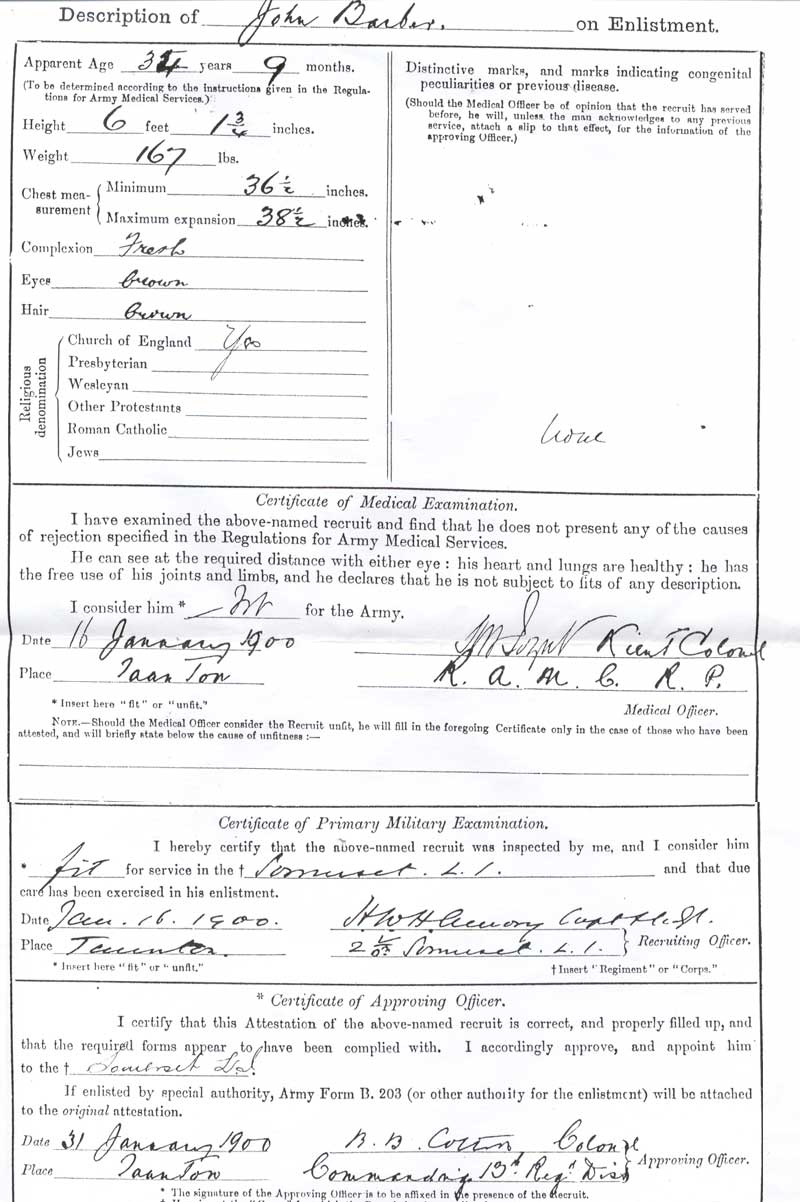 Description of John Barber. on Enlistment.
Apparent Age 34 years 9 months.
(To be determined according to the instructions given in the Regula-
tions for Army Medical Services.)
Height 6 feet 1 3/4 inches.
Weight 167 lbs.
Chest mea-
surement
Minimum 36 1/2 inches.
Maximum expansion 38 1/2 inches.
Complexion Fresh
Eyes brown
Hair brown
Religious
denomination
Church of England Yes
Presbyterian
Wesleyan
Other Protestants
Roman Catholic
Jews
Distinctive marks, and marks indicating congenital
peculiarities or previous disease.
(Should the Medical Officer be of opinion that the recruit has served
before, he will, unless the man acknowledges to any previous
service, attach a slip to that effect, for the information of the
approving Officer.)
None
Certificate of Medical Examination.
I have examined the above-named recruit and find that he does not present any of the causes
of rejection specified in the Regulations for Army Medical Services.
He can see at the required distance with either eye : his heart and lungs are healthy : he has
the free use of his joints and limbs, and he declares that he is not subject to fits of any description.
I consider him * fit for the Army.
Date 16 January 1900 Lieut Colonel
Place Taunton R. A. M. C. R. P.
* Insert here "fit" or "unfit." Medical Officer.
NOTE.—Should the Medical Officer consider the Recruit unfit, he will fill in the foregoing Certificate only in the case of those who have been
attested, and will briefly state below the cause of unfitness :—
Certificate of Primary Military Examination.
I hereby certify that the above-named recruit was inspected by me, and I consider him
* fit for service in the † Somerset. L. I. and that due
care has been exercised in his enlistment.
Date Jan. 16. 1900. Capt
Place Taunton. Somerset. L. I. } Recruiting Officer.
* Insert here "fit" or "unfit." † Insert "Regiment" or "Corps."
* Certificate of Approving Officer.
I certify that this Attestation of the above-named recruit is correct, and properly filled up, and
that the required forms appear to have been complied with. I accordingly approve, and appoint him
to the † Somerset L.I.
If enlisted by special authority, Army Form B. 203 (or other authority for the enlistment) will be attached
to the original attestation.
Date 31 January 1900 Colonel
Place Taunton Commanding 13th Regl Dist } Approving Officer.
* The signature of the Approving Officer is to be affixed in the presence of the Recruit.